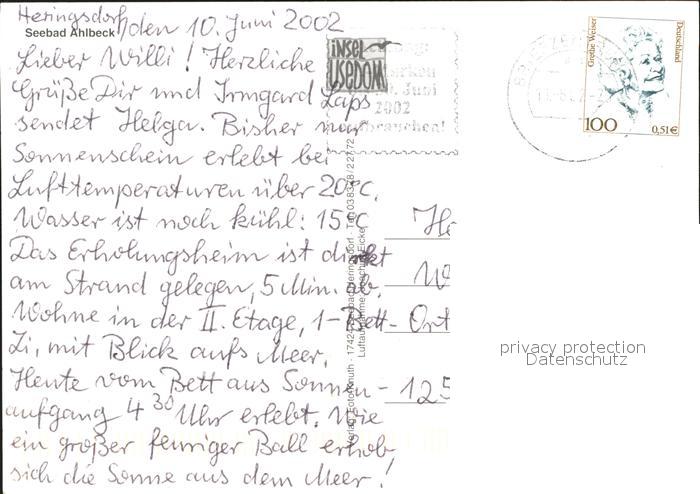 Heringsdorf, den 10. Juni 2002
Seebad Ahlbeck
Lieber Willi! Herzliche
Grüße Dir und Irmgard Laps
sendet Helga. Bisher nur
Sonnenschein erlebt bei
Lufttemperaturen über 20°C,
Wasser ist noch kühl: 15°C
Das Erholungsheim ist direkt
am Strand gelegen, 5 Min. ab.
Wohne in der II. Etage, 1-Bett-
Zi, mit Blick aufs Meer.
Heute vom Bett aus Sonnen-
aufgang 4 30 Uhr erlebt. Wie
ein großer feuriger Ball erhob
sich die Sonne aus dem Meer!
INSEL
USEDOM
Juni
2002
Grethe Weiser
Deutschland
100
0,51€
He
W
Ort
125
privacy protection
Datenschutz